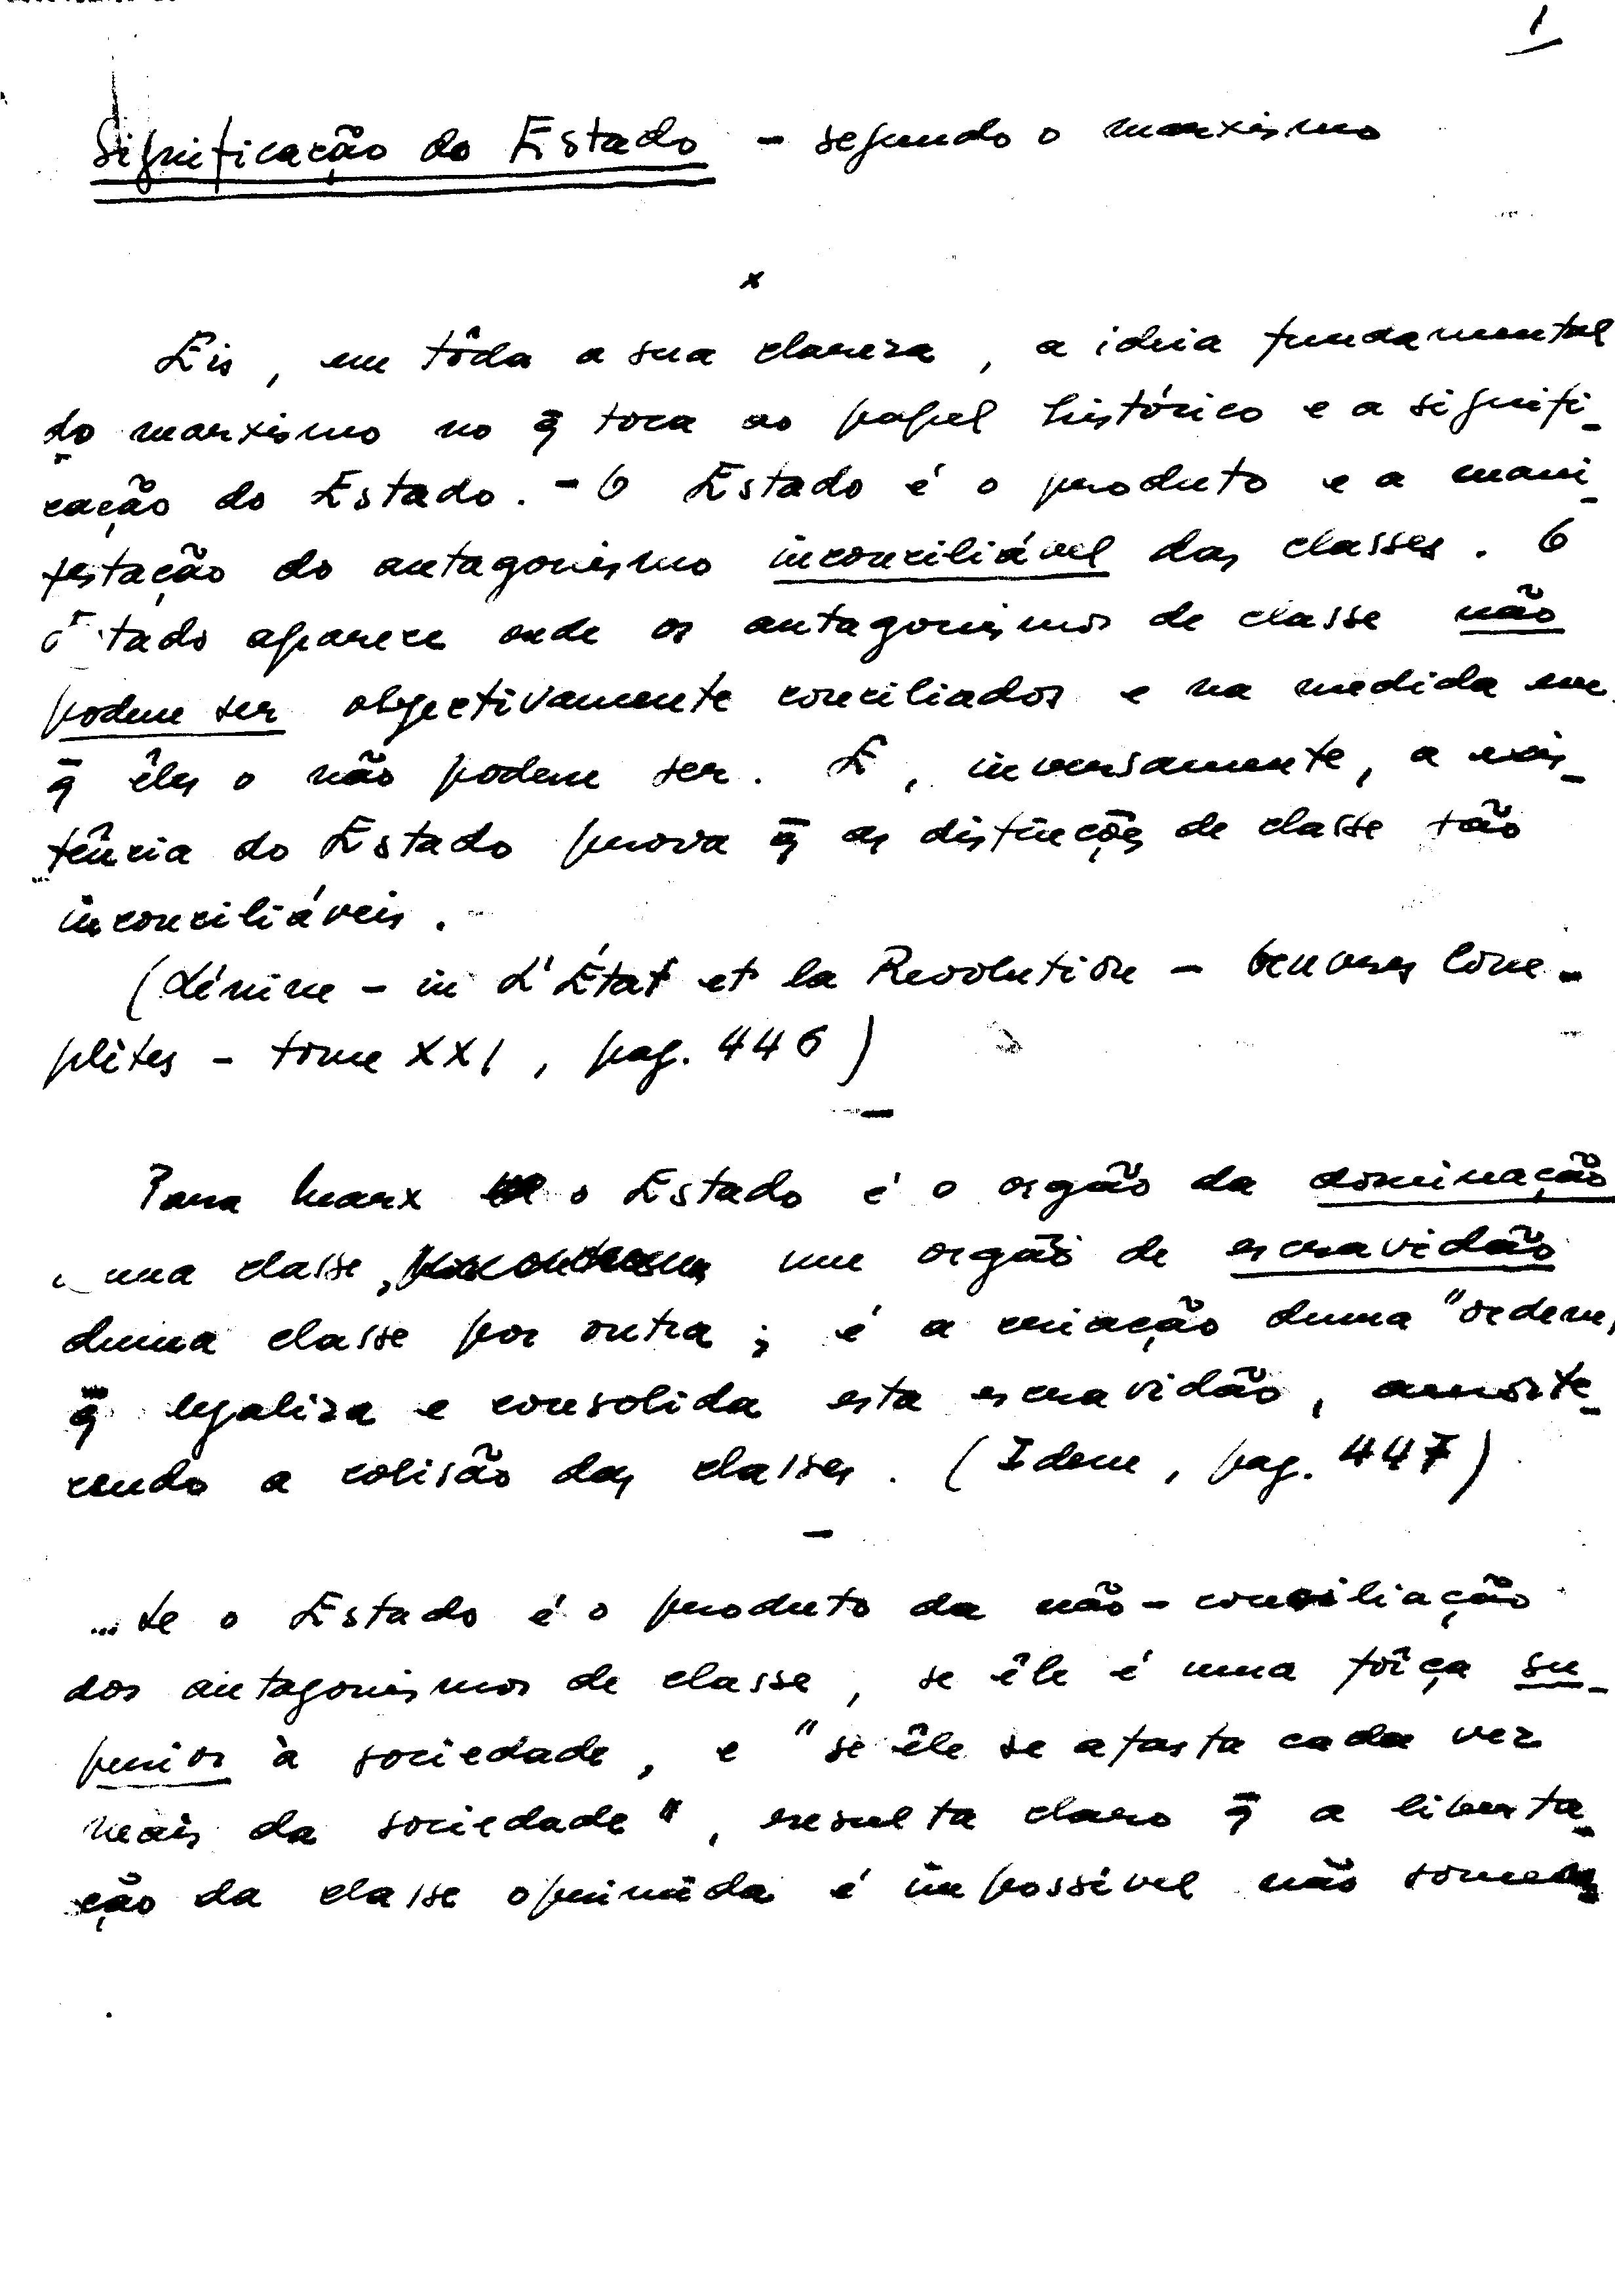 1
Significação do Estado - segundo o marxismo
x
Eis, em tôda a sua clareza, a ideia fundamental
do marxismo no q̄ toca ao papel histórico e a signifi-
cação do Estado. - O Estado é o produto e a mani-
festação do antagonismo inconciliável das classes. O
Estado aparece onde os antagonismos de classe não
podem ser objectivamente conciliados e na medida em
q̄ êles o não podem ser. E, inversamente, a exis-
tência do Estado prova q̄ as distinções de classe são
inconciliáveis.
(Lénine - in L'État et la Revolution - Oeuvres Com-
plètes - tome XXI, pag. 446)
Para Marx o Estado é o orgão da dominação
duma classe, um orgão de escravidão
duma classe por outra; é a criação duma "ordem"
q̄ legaliza e consolida esta escravidão, amorte-
cendo a colisão das classes. (Idem, pag. 447)
... se o Estado é o produto da não-conciliação
dos antagonismos de classe, se êle é uma fôrça su-
perior à sociedade, e "se êle se afasta cada vez
mais da sociedade", resulta claro q̄ a liberta-
ção da classe oprimida é impossível não